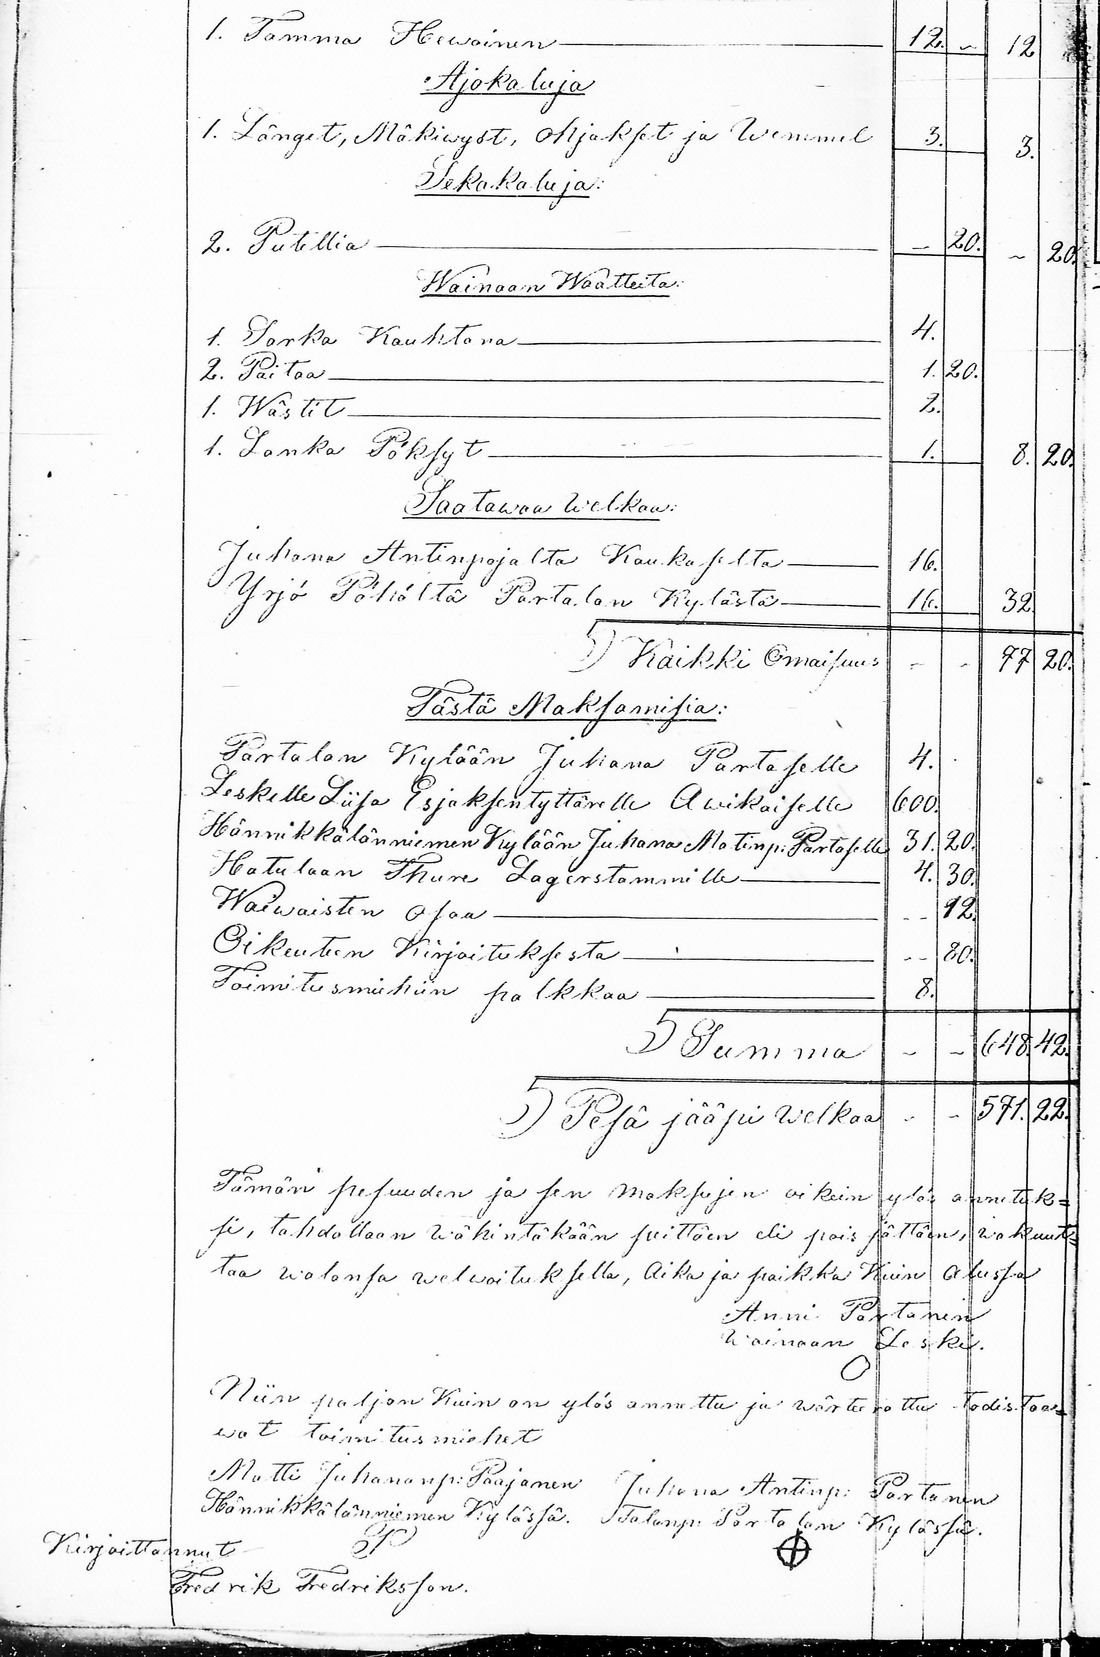 1. Tamma Hewoinen 12. – 12
Ajokaluja
1. Länget, Mäkiwyst, Ohjakset ja Wemmel 3. 3.
Sekakaluja:
2. Putellia – 20. – 20.
Wainaan Waatteita:
1. Sarka Kauhtana 4.
2. Paitaa 1. 20.
1. Wästit 2.
1. Lanka Pöksyt 1. 8. 20.
Saatawaa welkaa:
Juhana Antinpojalta Kaukaselta 16.
Yrjö Pöhöltä Partalan Kylästä 16. 32
Kaikki Omaisuus – – 77 20.
Tästä Maksamisia:
Partalan Kylään Juhana Partaselle 4.
Leskelle Liisa Esjaksentyttärelle Awikaiselle 600.
Hännikkälänniemen Kylään Juhana Matinp: Partaselle 31. 20.
Hatulaan Thure Lagerstammille 4. 30.
Waiwaisten osaa – – 12.
Oikeuteen Kirjoituksesta – – 80.
Toimitusmiehiin palkkaa 8.
Summa – – 648. 42.
Pesä jääpi welkaa – – 571. 22.
Tämän pesuuden ja sen maksujen oikein ylös annetuk=
si, tahdollaan wähintäkään peittäen eli pois jättäen, wakuut=
taa walansa welwoituksella, Aika ja paikka Kuin Alussa
Anni Partanen
Wainaan Leski.
Niin paljon Kuin on ylös annettu ja wärteerattu todistaa=
wat toimitusmiehet
Matti Juhananp: Paajanen Juhana Antinp: Partanen
Hännikkälänniemen Kylässä. Talonp: Partalan Kylässä.
Kirjoittannut
Fredrik Fredriksson.